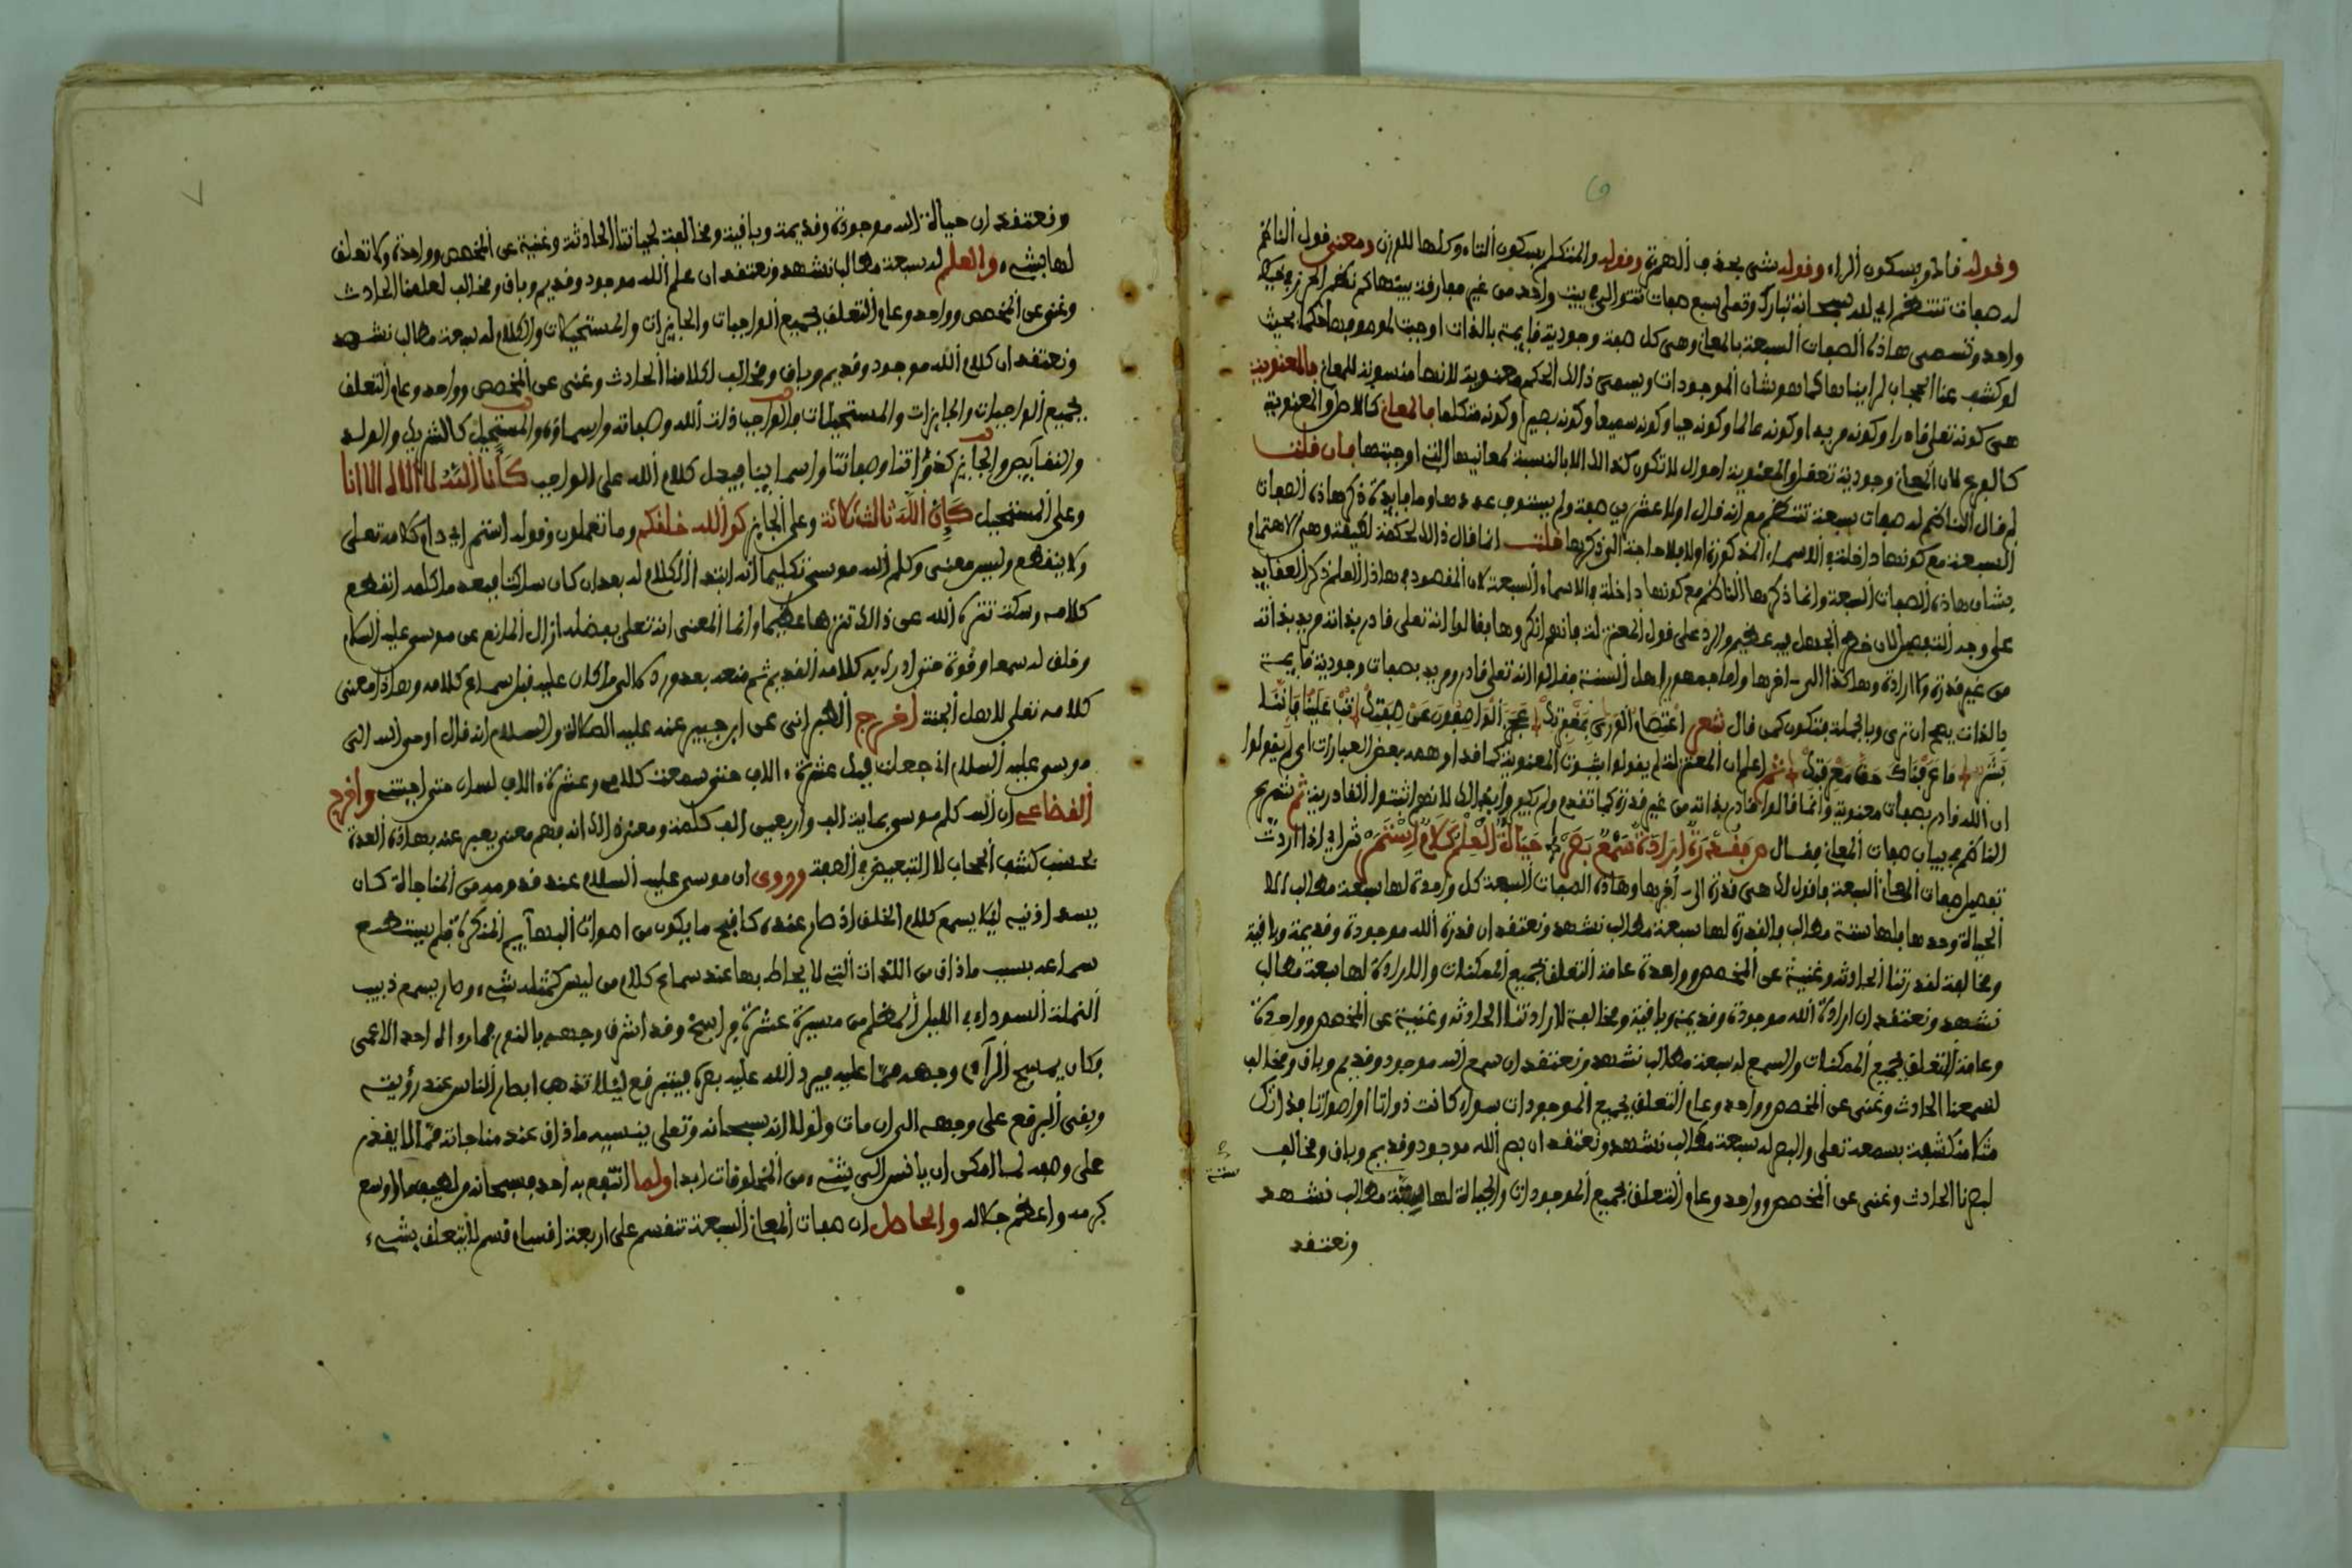 وقوله قادر بسكون الراء وقوله شيء بحذف الهمزة وقوله والمتكلم بسكون التاء وكلها للوزن ومعنى قول الناظم
له صفات تنتظم اي لله سبحانه تبارك وتعلى سبع صفات تتوالى في بيت واحد من غير مفارقة بينها كنظم الخرز في سلك
واحد وتسمى هاذه الصفات السبعة بالمعاني وهي كل صفة وجودية قايمة بالذات اوجبت لموصوفها حكما بحيث
لو كشف عنا الحجاب لراينا بها كما هو شان الموجودات ويسمى ذالك الحكم معنوية لانها منسوبة للمعاني فالمعنوية
هي كونه تعلى قادرا وكونه مريدا وكونه عالما وكونه حيا وكونه سميعا وكونه بصيرا وكونه متكلما فالمعاني كالاصل والمعنوية
كالفرع لان المعاني وجودية تعقل والمعنوية احوال لا تكون كذالك الا بالنسبة لمعانيها التي اوجبتها فان قلت
لم قال الناظم له صفات سبعة تنتظم مع انه قال اولا عشرين صفة ولم يستوف عددها وما فايدة ذكر هاذه الصفات
السبعة مع كونها داخلة في الاسماء المذكورة اولا فلا حاجة الى ذكرها قلت انما قال ذالك لحكمة لطيفة وهي الاهتمام
بشان هاذه الصفات السبعة وانما ذكرها الناظم مع كونها داخلة في الاسماء السبعة لان المقصود في هاذا العلم ذكر العقايد
على وجه التفصيل لان خطر الجهل فيه عظيم والرد على قول المعتزلة فانهم انكروها فقالوا انه تعلى قادر بذاته مريد بذاته
من غير قدرة ولا ارادة وهاكذا الى اخرها واما جمهور اهل السنة فقالوا انه تعلى قادر ومريد بصفات وجودية قايمة
بالذات يصح ان ترى وبالجملة فتكون كمن قال شعر اعتصام الورى بمغفرتك عجز الواصفون عن صفتك تب علينا فاننا
بشر ما عرفناك حق معرفتك ثم اعلم ان المعتزلة لم يقولوا بثبوت المعنوية كما قد اوهمه بعض العبارات اي لم يقولوا
ان الله قادر بصفات معنوية وانما قالوا قادر بذاته من غير قدرة كما تقدم ولم يكبروا بذالك لانهم اثبتوا القادرية ثم شرع
الناظم في بيان صفات المعاني فقال فقدرة ارادة سمع بصر حياة العلم كلام استمر ش اي اذا اردت
تفصيل صفات المعاني السبعة فاقول لك هي قدرة الى اخرها وهاذه الصفات السبعة كل واحدة لها سبعة مطالب الا
الحياة وحدها فلها ستة مطالب فالقدرة لها سبعة مطالب نشهد ونعتقد ان قدرة الله موجودة وقديمة وباقية
ومخالفة لقدرتنا الحادثة وغنية عن المخصص وواحدة عامة التعلق بجميع الممكنات والارادة لها سبعة مطالب
نشهد ونعتقد ان ارادة الله موجودة وقديمة وباقية ومخالفة لارادتنا الحادثة وغنية عن المخصص وواحدة
وعامة التعلق بجميع الممكنات والسمع له سبعة مطالب نشهد ونعتقد ان سمع الله موجود وقديم وباق ومخالف
لسمعنا الحادث وغني عن المخصص وواحد وعام التعلق بجميع الموجودات سواء كانت ذواتا او اصواتا فذاتك
مثلا منكشفة بسمعه تعلى والبصر له سبعة مطالب نشهد ونعتقد ان بصر الله موجود وقديم وباق ومخالف
لبصرنا الحادث وغني عن المخصص وواحد وعام التعلق بجميع الموجودات والحياة لها ستة مطالب نشهد
ستة
ونعتقد
ونعتقد ان حياة الله موجودة وقديمة وباقية ومخالفة لحياتنا الحادثة وغنية عن المخصص وواحدة ولا تعلق
لها بشيء والعلم له سبعة مطالب نشهد ونعتقد ان علم الله موجود وقديم وباق ومخالف لعلمنا الحادث
وغني عن المخصص وواحد وعام التعلق بجميع الواجبات والجايزات والمستحيلات والكلام له سبعة مطالب نشهد
ونعتقد ان كلام الله موجود وقديم وباق ومخالف لكلامنا الحادث وغني عن المخصص وواحد وعام التعلق
بجميع الواجبات والجايزات والمستحيلات فالواجب ذات الله وصفاته واسماؤه والمستحيل كالشريك والولد
والنقايص والجايز كذواتنا وصفاتنا واسماينا فيدل كلام الله على الواجب كأنا الله لا اله الا انا
وعلى المستحيل كإن الله ثالث ثلاثة وعلى الجايز كوالله خلقكم وما تعملون وقوله استمر اي دام كلامه تعلى
ولا ينقطع وليس معنى وكلم الله موسى تكليما انه ابتدا الكلام له بعد ان كان ساكتا وبعد ما كلمه انقطع
كلامه وسكت تنزه الله عن ذالك تنزها عظيما وانما المعنى انه تعلى بفضله ازال المانع عن موسى عليه السلام
وخلق له سمعا وقوة حتى ادرك به كلامه القديم ثم منعه بعد ورده الى ما كان عليه قبل سماع كلامه وهاذا معنى
كلامه تعلى لاهل الجنة اخرج الطبراني عن ابن جبير عنه عليه الصلاة والسلام انه قال اوحى الله الى
موسى عليه السلام اني جعلت فيك عشرة ءالاف حتى سمعت كلامي وعشرة ءالاف لسان حتى اجبتني واخرج
القضاعي ان الله كلم موسى بماية الف واربعين الف كلمة ومعنى ذالك انه فهم معنى يعبر عنه بهاذه العدة
بحسب كشف الحجاب لا التبعيض في الصفة وروي ان موسى عليه السلام عند قدومه من المناجاة كان
يسد اذنيه ليلا يسمع كلام الخلق اذ صار عنده كاقبح ما يكون من اصوات البهايم المنكرة فلم يستطع
سماعه بسبب ما ذاق من اللذات التي لا يحاط بها عند سماع كلام من ليس كمثله شيء وصار يسمع دبيب
النملة السوداء في الليل المظلم من مسيرة عشرة فراسخ وقد اشرق وجهه بالنور فما رءاه احد الا عمي
وكان يمسح الراءي وجهه مما عليه فيرد الله عليه بصره فيتبرقع ليلا تذهب ابصار الناس عند رؤيته
وبقي البرقع على وجهه الى ان مات ولولا انه سبحانه وتعلى ينسيه ما ذاق عند مناجاته مما لا يقدر
على وصفه لما امكن ان يانس الى شيء من المخلوقات ابدا ولما انتفع به احد فسبحانه من لطيف ما اوسع
كرمه واعظم جلاله والحاصل ان صفات المعاني السبعة تنقسم على اربعة اقسام قسم لا يتعلق بشيء